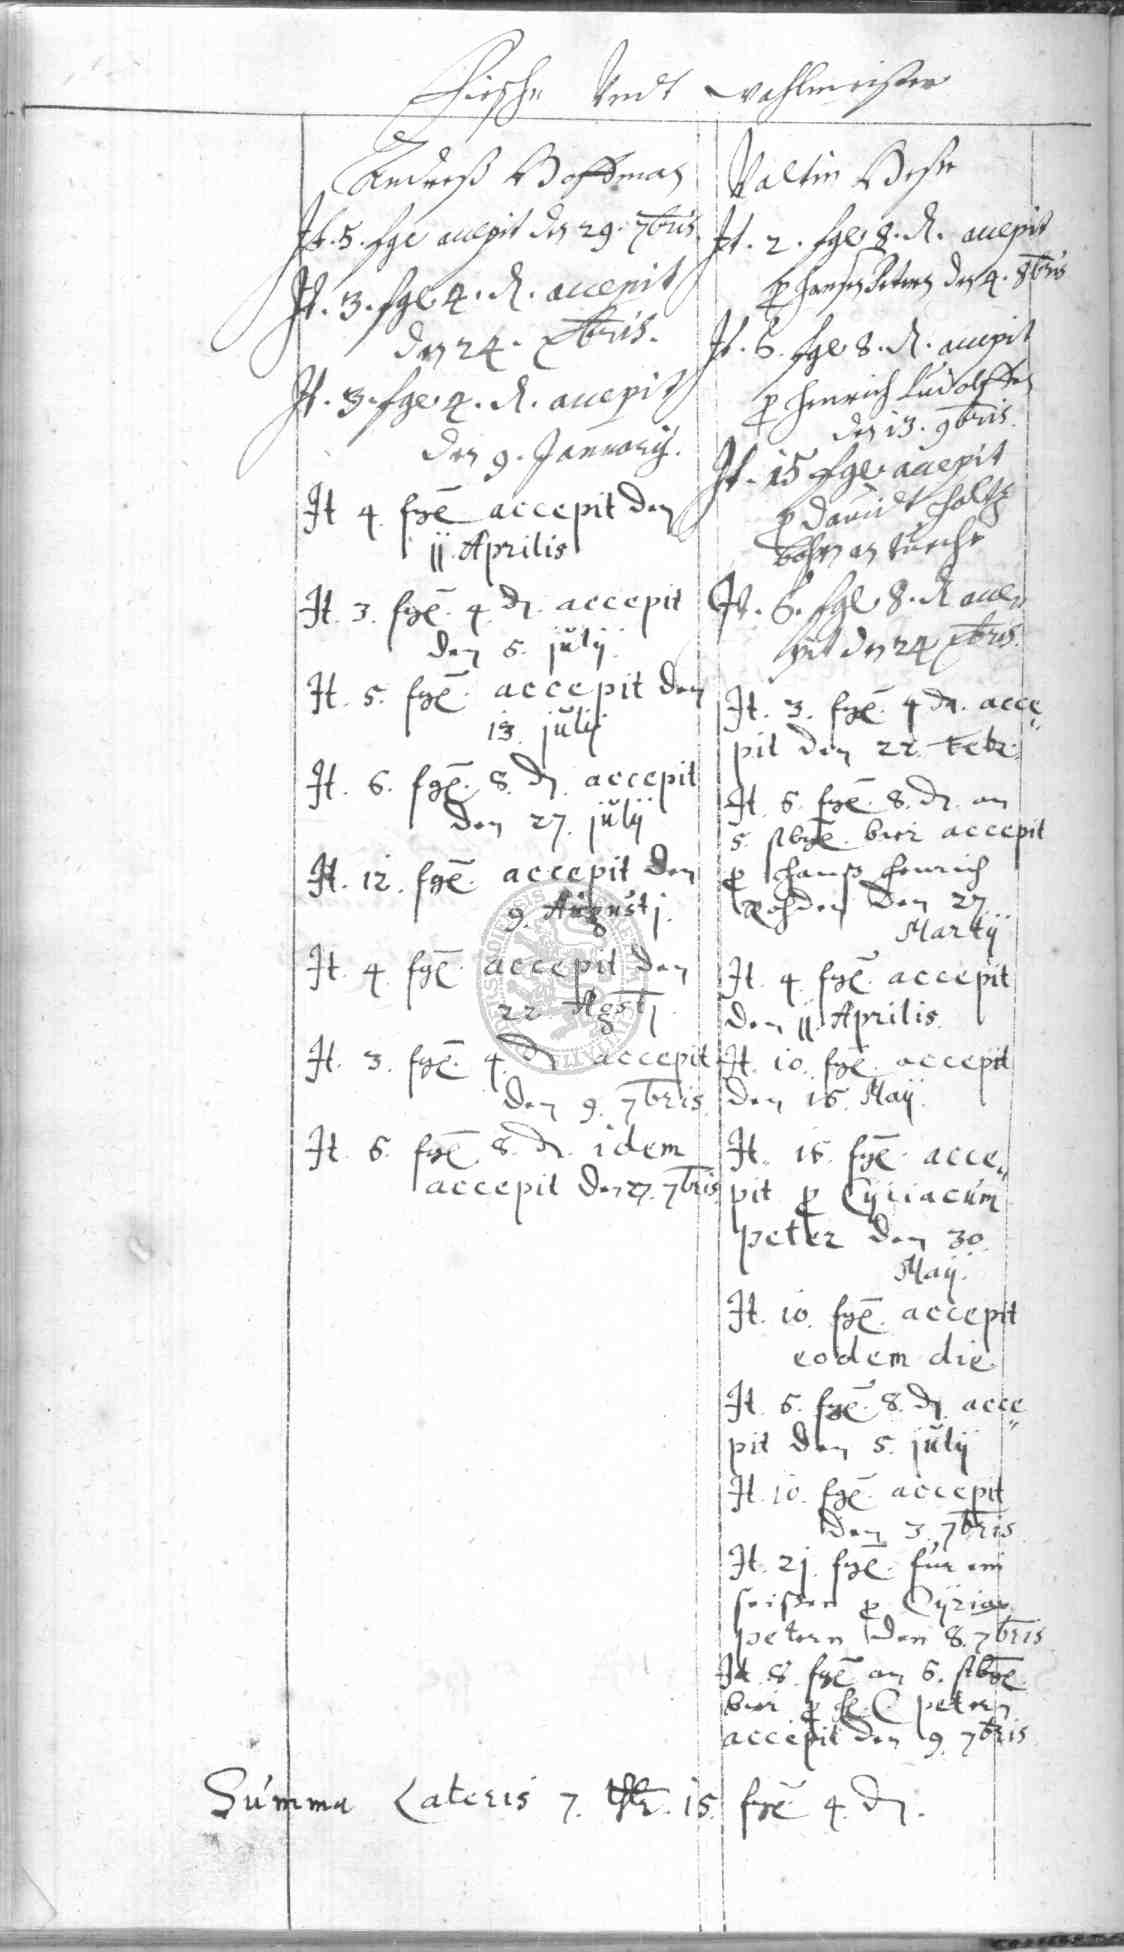 Hirsche Undt wahlmeister
Andreß Hoffman
It. 5. fge accepit den 29. 7bris
It. 3. fgl 4. d. accepit
den 24. Xbris.
It. 3. fgl 4. d. accepit
den 9. Januarij.
It 4 fgẽ accepit den
11 Aprilis
It. 3. fgẽ. 4. d. accepit
den 5. julij.
It. 5. fgẽ. accepit den
13. julij
It. 6. fgẽ. 8. d. accepit
den 27. julij
It. 12. fgẽ. accepit den
9. Augustj.
It. 4 fgẽ. accepit den
22 Agstj.
It. 3. fgẽ. 4. d. accepit
den 9. 7bris
It. 6. fgẽ. 8. d. idem
accepit den 27. 7bris
Valtin
It. 2. fgl 8. d. accepit
p den 4. 8bris
It. 6. fgl 8. d. accepit
p Henrich Ludolffen
den 13. 9bris.
It. 15 fgl accepit
p Dauidt holtz
It. 6. fgl 8. d acce„
pit den 24 Xbris.
It. 3. fgẽ. 4 d. acce„
pit den 22. Febr.
It. 6. fgẽ. 8. d. an
5. stbgẽ. bier accepit
p Hanß Henrich
den 27
Martij
It. 4 fgẽ. accepit
den 11 Aprilis.
It. 10. fgẽ. accepit
den 16. Maij.
It. 16. fgẽ. acce„
pit p Cyriacum
peter den 30.
Maij.
It. 10. fgẽ. accepit
eodem die.
It. 6. fgẽ. 8. d. acce„
pit den 5. julij
It. 10. fgẽ. accepit
den 3. 7bris
It. 21. fgẽ. für ein
p Cyriac
petern den 8. 7bris
It. 8. fgẽ an 6. stbgẽ
bier p C petern
accepit den 9. 7bris
Summa Lateris 7. thlr. 15. fgẽ 4. d.